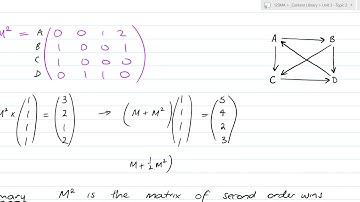 SDMA > .. Content Library > Unit 3 - Topic 2
M² = A ( 0 0 1 2 )
B ( 1 0 0 1 )
C ( 1 0 0 0 )
D ( 0 1 1 0 )
A B
C D
M² × (1 1 1 1) = (3 2 1 2) → (M + M²) (1 1 1 1) = (5 4 2 3)
M + ½ M²)
M² is the matrix of second order wins